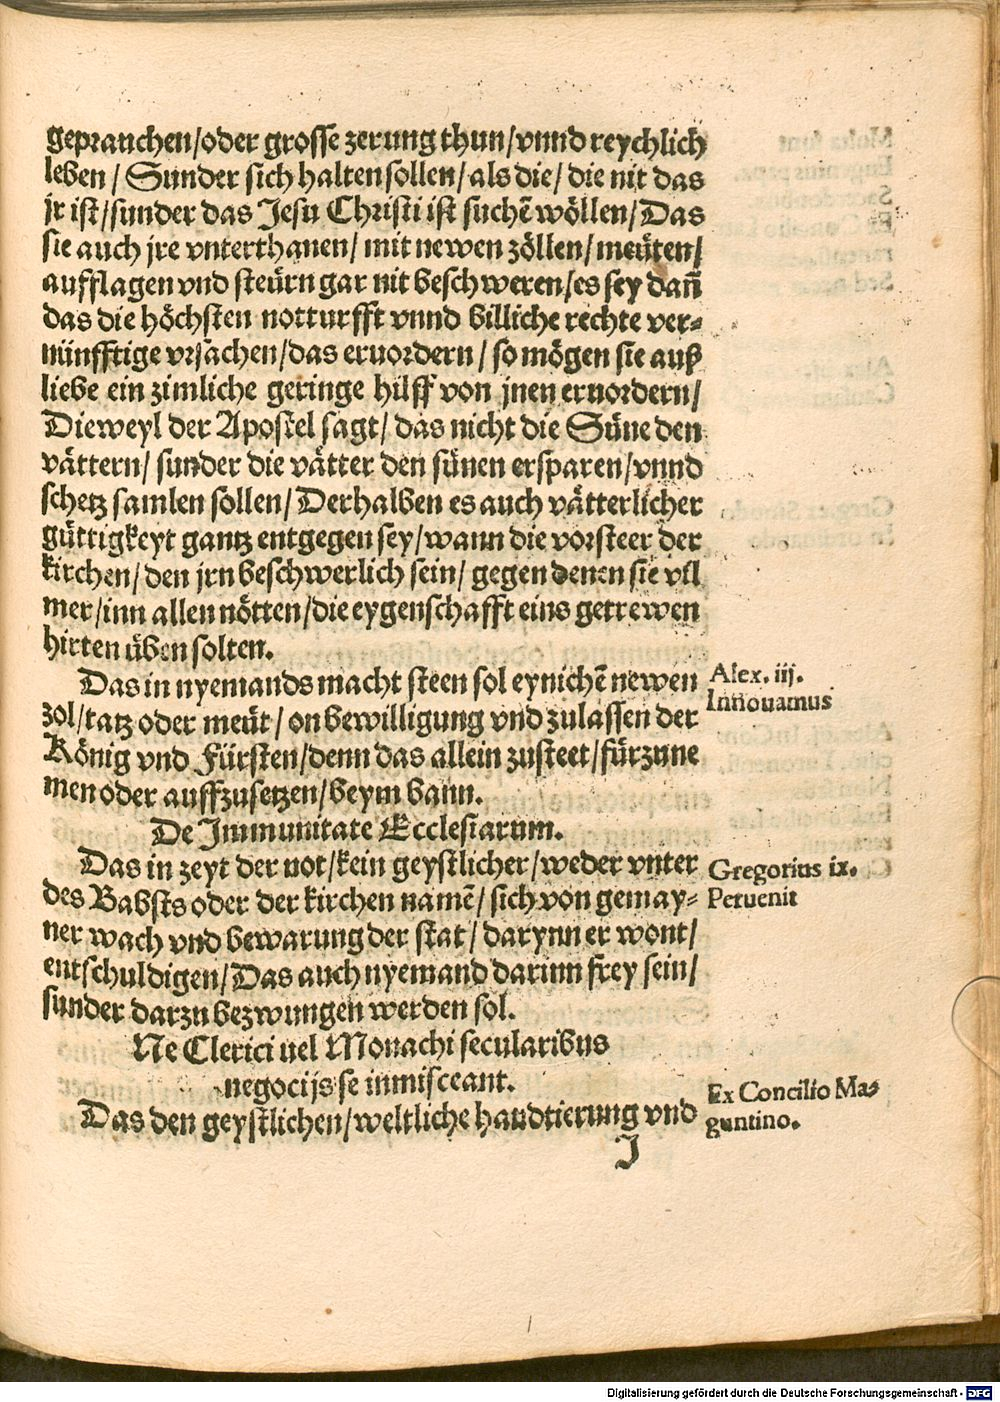 gepranchen/oder grosse zerung thun/vnnd reychlich
leben/ Sunder sich halten sollen/ als die/ die nit das
jr ist/sunder das Jesu Christi ist suchẽ wöllen/Das
sie auch jre vnterthanen/ mit newen zöllen/ meüten/
aufflagen vnd steürn gar nit beschweren/es sey dañ
das die höchsten notturfft vnnd billiche rechte ver⸗
nünfftige vrsachen/das eruordern/ so mögen sie auß
liebe ein zimliche geringe hilff von jnen eruordern/
Dieweyl der Apostel sagt/ das nicht die Süne den
vättern/ sunder die vätter den sünen ersparen/vnnd
schetz samlen sollen/Derhalben es auch vätterlicher
güttigkeyt gantz entgegen sey/wann die vorsteer der
kirchen/den jrn beschwerlich sein/ gegen denen sie vil
mer/inn allen nötten/die eygenschafft eins getrewen
hirten üben solten.
Das in nyemands macht steen sol eynichẽ newen
zol/tatz oder meüt/ on bewilligung vnd zulassen der
König vnd Fürsten/denn das allein zusteet/fürzune
men oder auffzusetzen/beym bann.
Alex. iij.
Innouamus
De Immunitate Ecclesiarum.
Das in zeyt der not/kein geystlicher/weder vnter
des Babsts oder der kirchen namẽ/ sich von gemay⸗
ner wach vnd bewarung der stat/ darynn er wont/
entschuldigen/Das auch nyemand darinn frey sein/
sunder darzu bezwungen werden sol.
Gregorius ix.
Peruenit
Ne Clerici uel Monachi secularibus
negocijs se inmisceant.
Das den geystlichen/weltliche handtierung vnd
Ex Concilio Ma⸗
guntino.
J
Digitalisierung gefördert durch die Deutsche Forschungsgemeinschaft - DFG